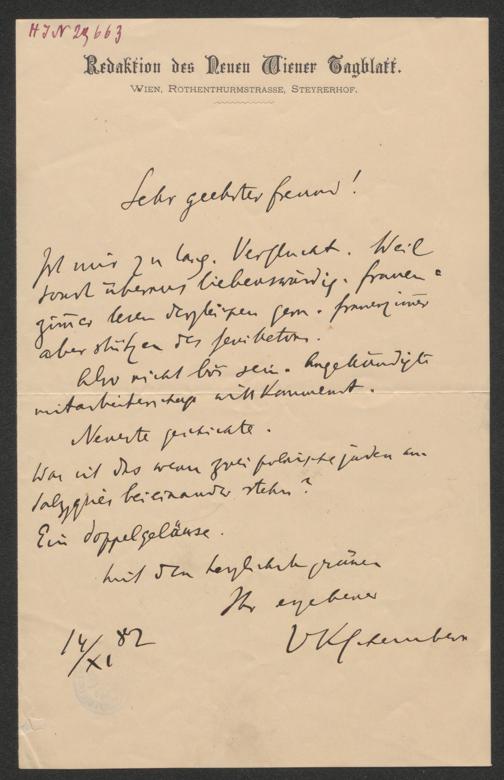 HIN 29,663
Redaktion des Neuen Wiener Tagblatt.
WIEN, ROTHENTHURMSTRASSE, STEYRERHOF.
Sehr geehrter freund!
Ist mir zu lang. Verflucht. Weil
sonst überaus liebenswürdig. frauen=
zimer lesen dergleichen gern. frauenzimer
aber stützen das feuilleton.
Also nicht bös sein. Angekündigte
mitarbeiterschap willkommenst.
Neueste geschichte.
Was ist das wenn zwei polnische juden am
salzgries beieinander stehn?
Ein doppelgeläuse.
mit den herzlichsten grüssen
Ihr ergebener
14/XI 82